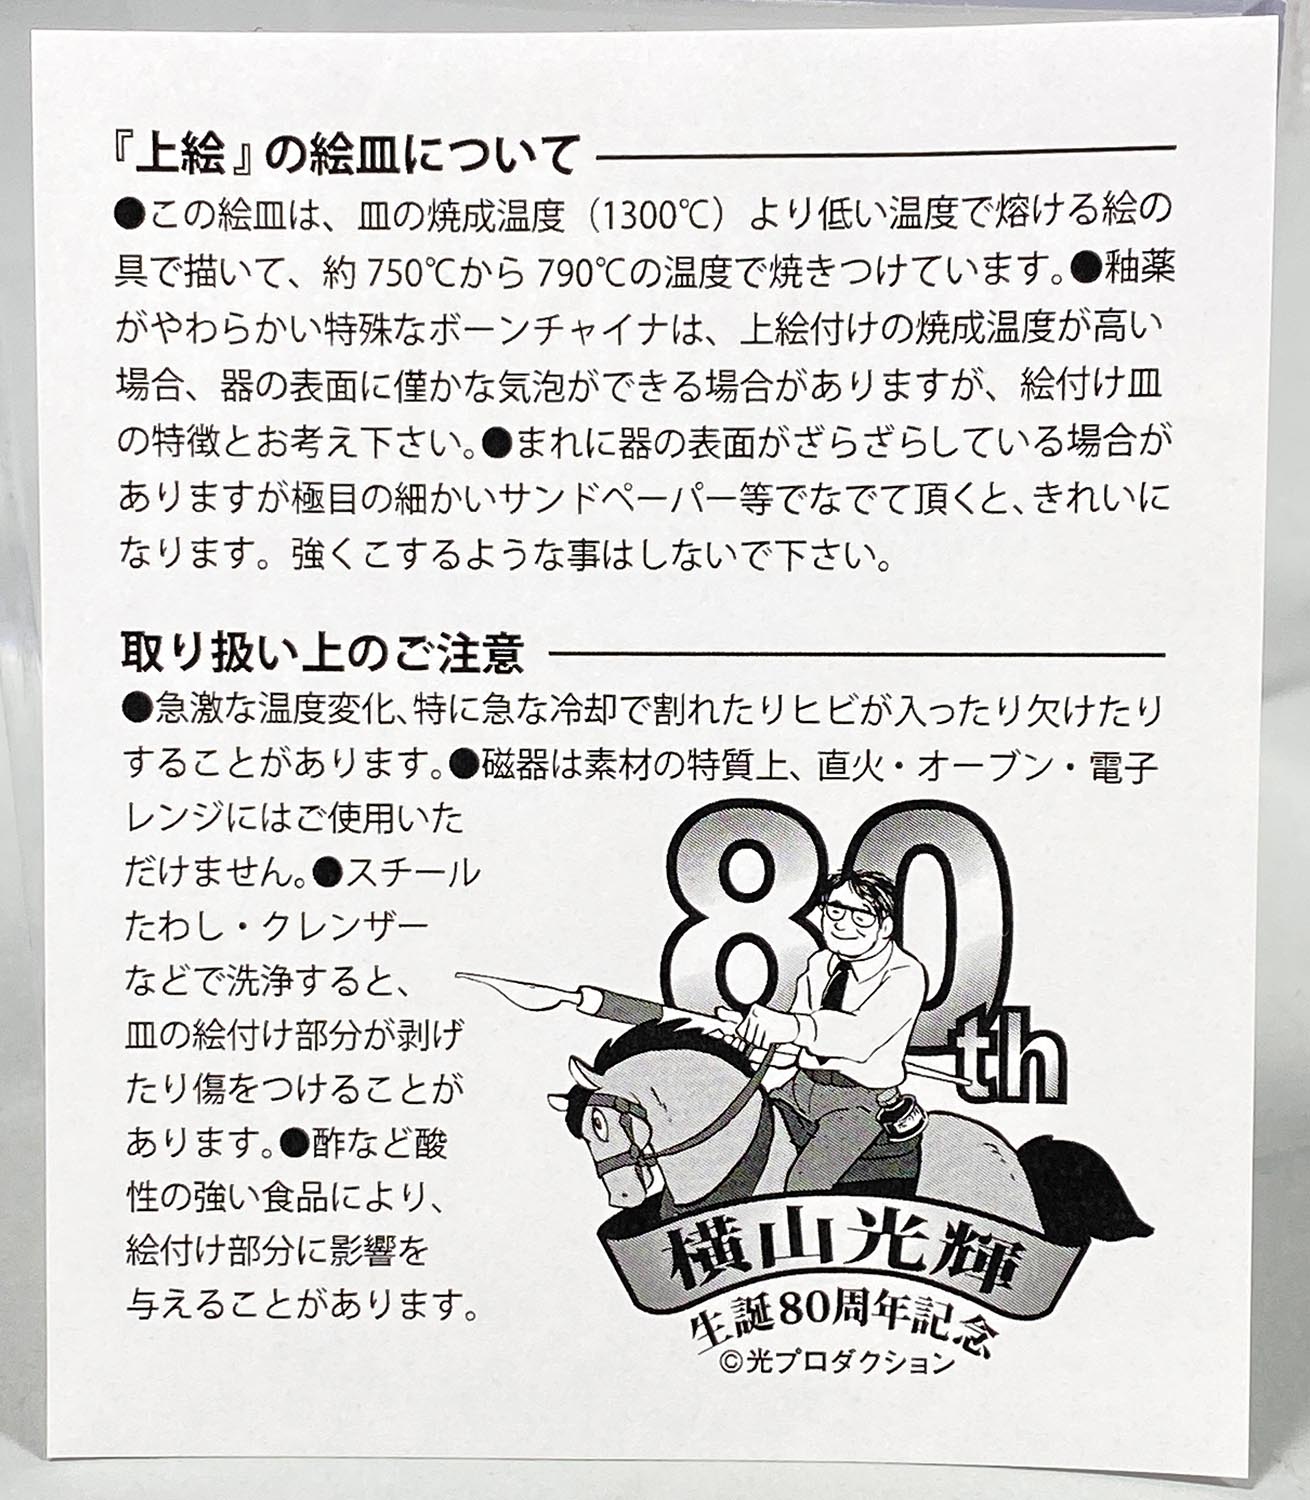 『上絵』の絵皿について
●この絵皿は、皿の焼成温度（1300℃）より低い温度で熔ける絵の
具で描いて、約750℃から790℃の温度で焼きつけています。●釉薬
がやわらかい特殊なボーンチャイナは、上絵付けの焼成温度が高い
場合、器の表面に僅かな気泡ができる場合がありますが、絵付け皿
の特徴とお考え下さい。●まれに器の表面がざらざらしている場合が
ありますが極目の細かいサンドペーパー等でなでて頂くと、きれいに
なります。強くこするような事はしないで下さい。
取り扱い上のご注意
●急激な温度変化、特に急な冷却で割れたりヒビが入ったり欠けたり
することがあります。●磁器は素材の特質上、直火・オーブン・電子
レンジにはご使用いた
だけません。●スチール
たわし・クレンザー
などで洗浄すると、
皿の絵付け部分が剥げ
たり傷をつけることが
あります。●酢など酸
性の強い食品により、
絵付け部分に影響を
与えることがあります。
80th
横山光輝
生誕80周年記念
©光プロダクション